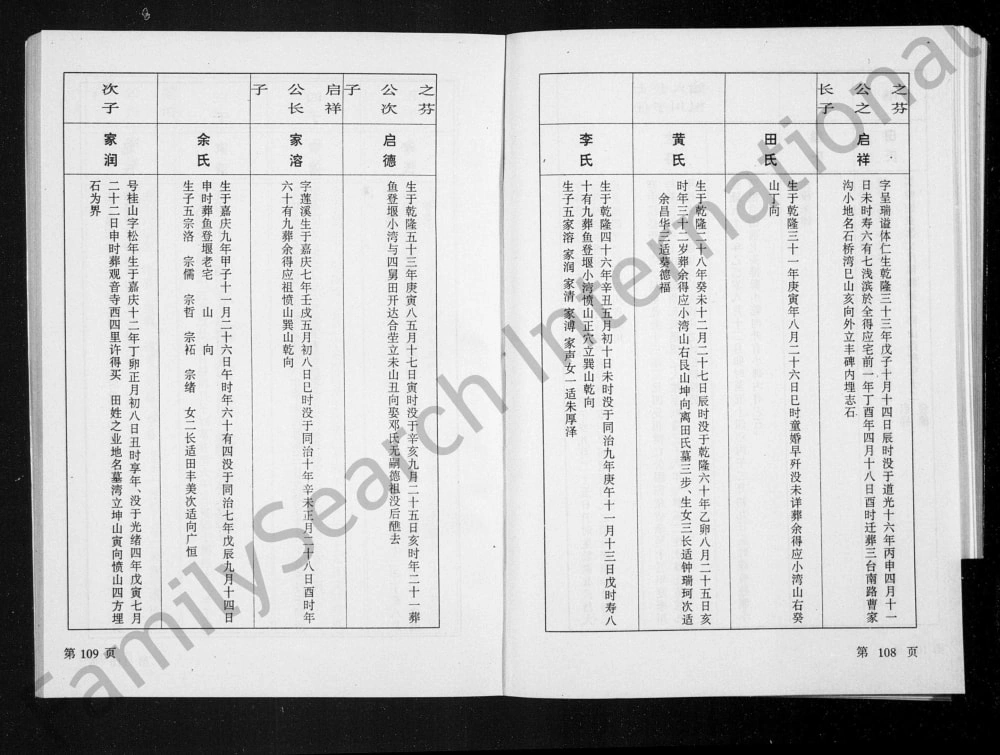 之芬
公之
长子
启祥
字呈瑞谥体仁生乾隆三十三年戊子十月十四日辰时没于道光十六年丙申四月十一
日未时寿六有七浅滨於全得应宅前一年丁酉年四月十八日酉时迁葬三台南路曹家
沟小地名石桥湾巳山亥向外立丰碑内埋志石
田氏
生于乾隆三十一年庚寅年八月二十六日巳时童婚早歼没未详葬余得应小湾山右癸
山丁向
黄氏
生于乾隆二十八年癸未十二月二十七日辰时没于乾隆六十年乙卯八月二十五日亥
时年三十二岁葬余得应小湾山右艮山坤向离田氏墓三步、生女三长适钟瑞珂次适
余昌华三适蔡德福
李氏
生于乾隆四十六年辛丑五月初十日未时没于同治九年庚午十一月十三日戊时寿八
十有九葬鱼登堰小湾愤山正穴立巽山乾向
生子五家溶 家润 家清 家溥 家声女一适朱厚泽
第 108 页
之芬
公次
子
启德
生于乾隆五十三年庚寅八五月十七日寅时没于辛亥九月二十五日亥时年二十一葬
鱼登堰小湾与四舅田开达合茔立未山丑向娶邓氏无嗣德祖没后醮去
启祥
公长
子
家溶
字莲溪生于嘉庆七年壬戌五月初八日巳时没于同治十年辛未正月二十八日酉时年
六十有九葬余得应祖愤山巽山乾向
余氏
生于嘉庆九年甲子十一月二十六日午时年六十有四没于同治七年戊辰九月十四日
申时葬鱼登堰老宅 山 向
生子五宗洛 宗儒 宗哲 宗祏 宗绪 女二长适田丰美次适向广恒
次子
家润
号桂山字松年生于嘉庆十二年丁卯正月初八日丑时享年、没于光绪四年戊寅七月
二十二日申时葬观音寺西四里许得买 田姓之业地名墓湾立坤山寅向愤山四方埋
石为界
第 109 页
FamilySearch International